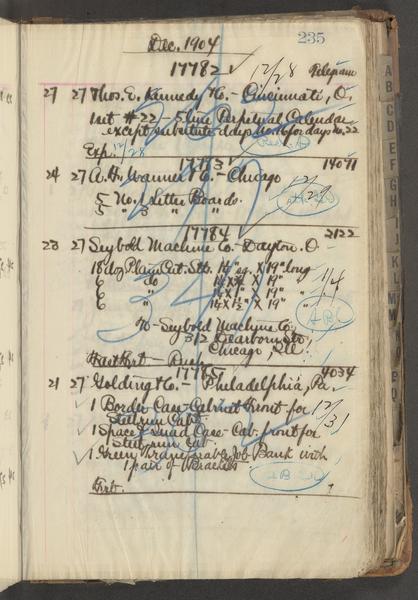 Dec. 1904
235
17782 ✓ 12/28 Telegram
27 27 Thos. E. Kennedy & Co. - Cincinnati, O.
1 set #22 - 5 line Perpetual Calendar
except substitute days No. 16 for days No. 22
Exp. 12/28
17783 14071
24 27 A. H. Wanner & Co - Chicago 12/29
5 No. 1 Letter Boards.
5 " 3 " "
17784 2122
23 27 Seybold Machine Co. - Dayton. O
18 doz Plain Cut. Stks. 19" long 1/4
6 do X 19"
6 " X 19" "
6 " X 19" "
To - Seybold Machine Co,
312 Dearborn St,
Chicago, Ill.
Fast Frt - Rush
17785 4034
21 27 Golding & Co. - Philadelphia, Pa.
1 Border Case - Cabinet Front for 12/31
Steel run Cab.
1 Space & Quad Case - Cab. front for
Steel run Cab.
1 Job Bank with
1 pair of Brackets
Frt.
A
B
C
D
E
F
G
H
I
J
K
L
M
W